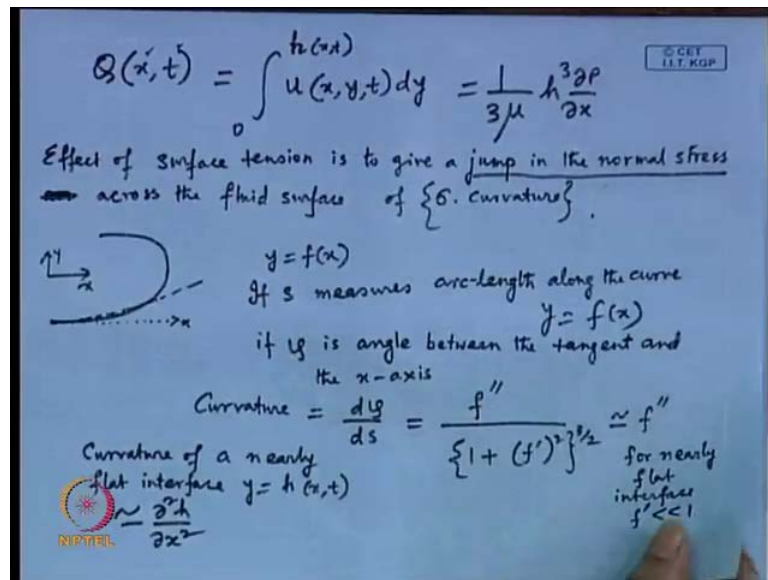 Q(x,t) = ∫₀^{h(x,t)} u(x,y,t) dy = 1/3μ h³ ∂p/∂x
© CET
I.I.T. KGP
Effect of surface tension is to give a jump in the normal stress
across the fluid surface of {σ. curvature}.
y = f(x)
If s measures arc-length along the curve
y = f(x)
if φ is angle between the tangent and
the x-axis
y
x
x
Curvature = dφ/ds = f″/{1 + (f′)²}^{3/2} ≃ f″
for nearly
flat
interface
f′ << 1
Curvature of a nearly
flat interface y = h(x,t)
≃ ∂²h/∂x²
NPTEL